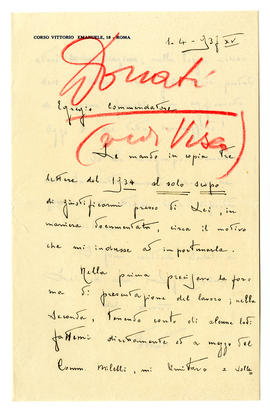 CORSO VITTORIO EMANUELE, 18 - ROMA
1-4-937 XV
Donati
Egregio Commendatore
(vedi Visa)
Le mando in copia tre
lettere del 1934 al solo scopo
di giustificarmi presso di Lei, in
maniera documentata, circa il motivo
che mi indusse ad importunarla.
Nella prima precisavo la for
ma di presentazione del lavoro; nella
seconda, tenendo conto di alcune lodi
fattemi direttamente ed a mezzo del
Comm. Miletti, mi limitavo a